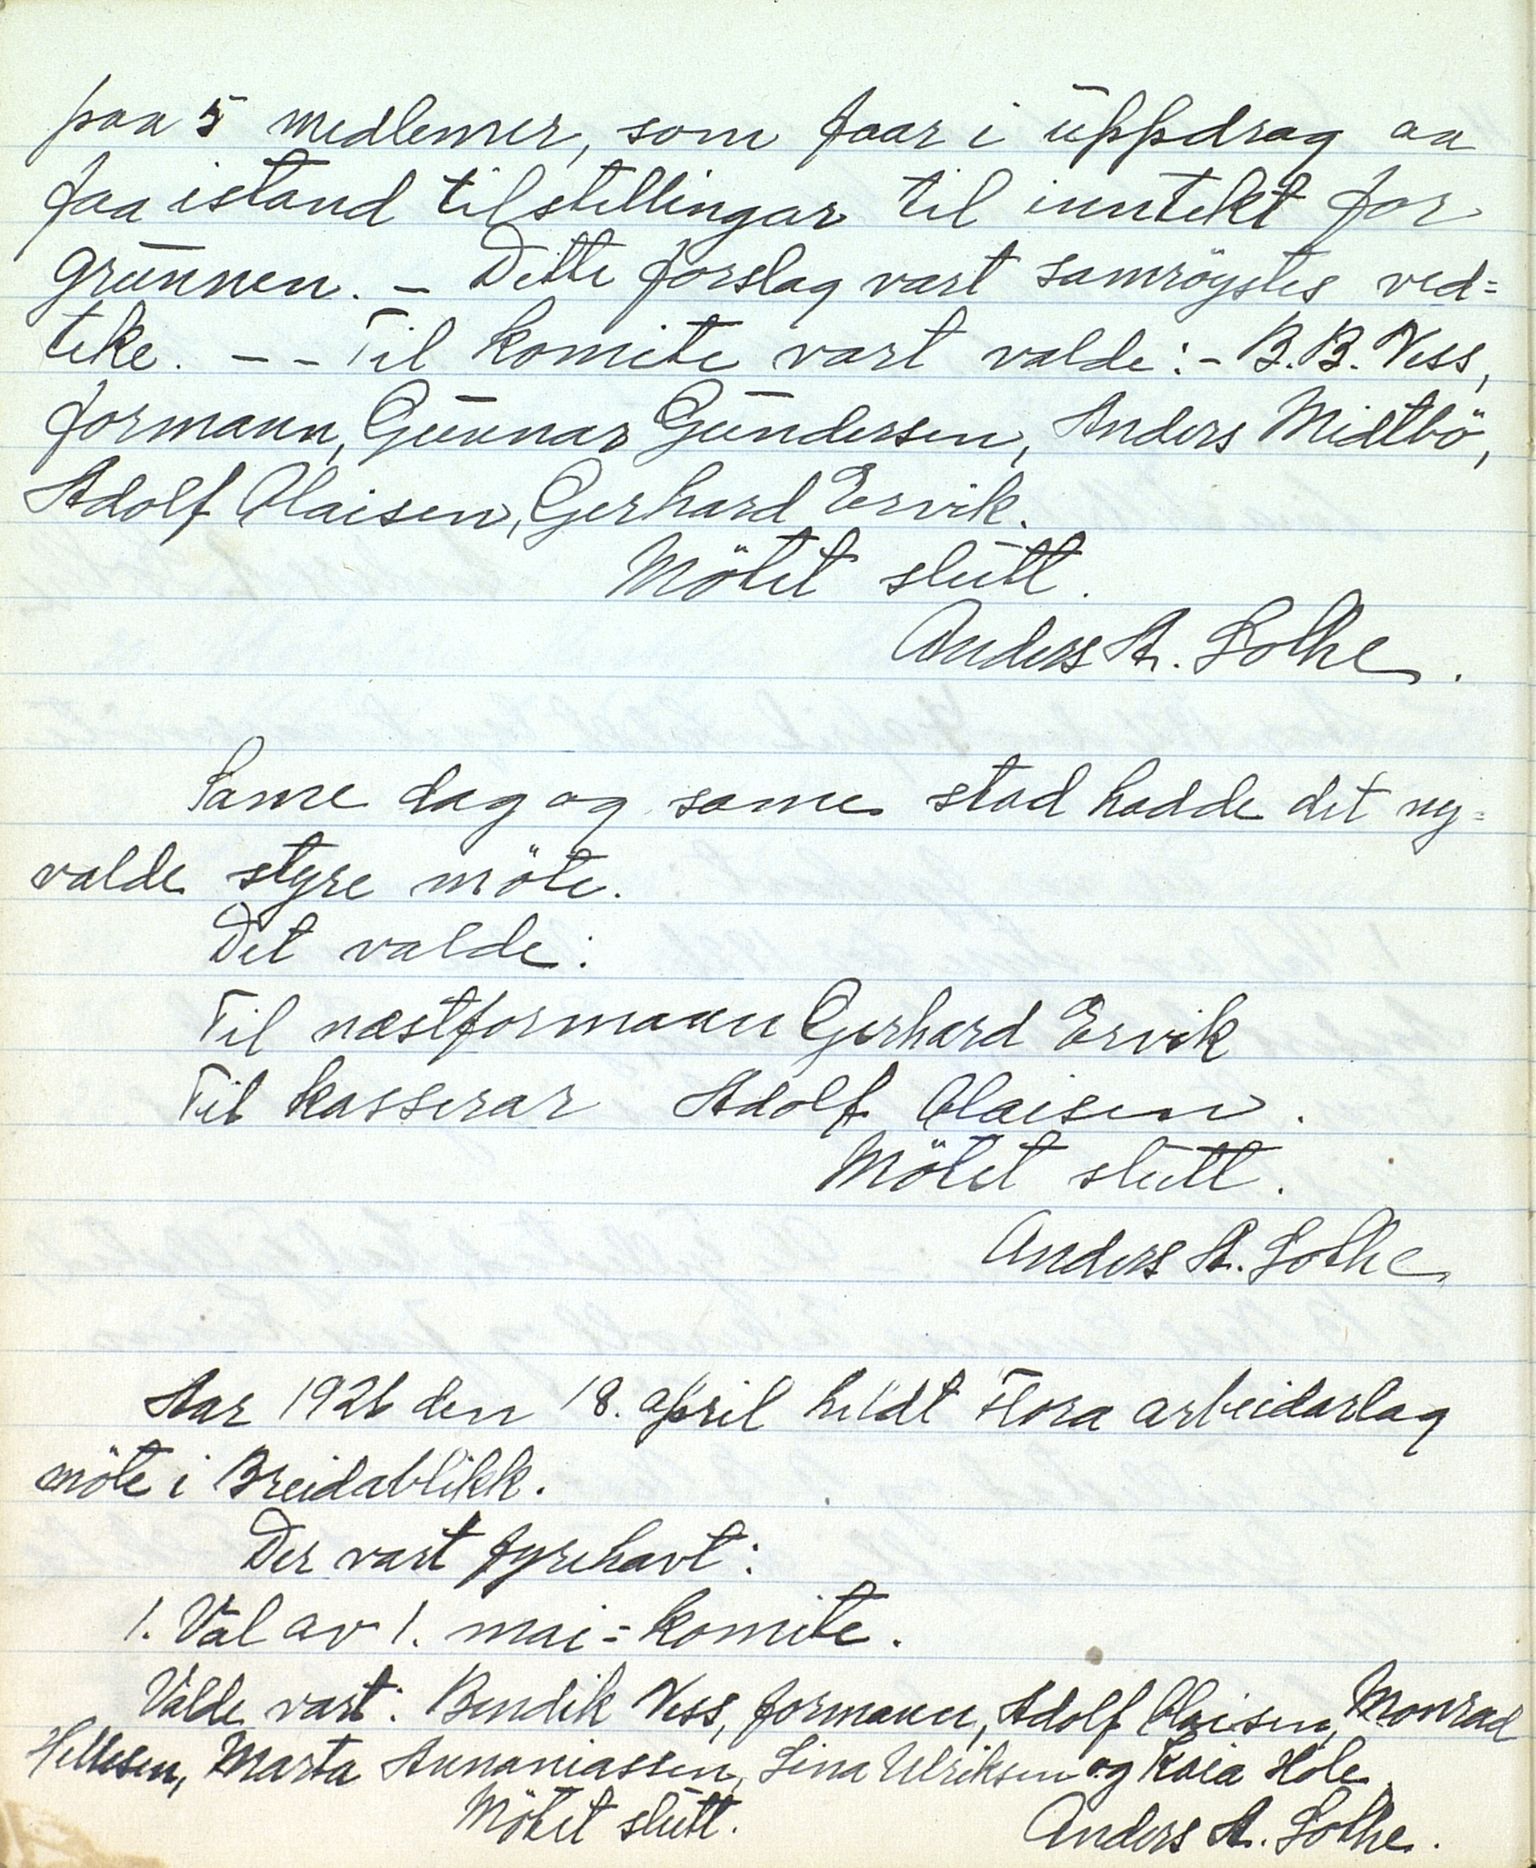 paa 5 medlemer, som faar i uppdrag aa
faa istand tilstellingar til inntekt for
grunnen. – Dette forslag vart samröystes ved=
teke. – – Til komite vart valde: – B. B. Ness,
formann, Gunnar Gundersen, Anders Midtbö,
Adolf Olaisen, Gerhard Ervik.
Mötet slutt.
Anders A. Lothe.
Same dag og same stad hadde det ny=
valde styre möte.
Det valde:
Til næstformann Gerhard Ervik
Til kasserar Adolf Olaisen.
Mötet slutt.
Anders A. Lothe
Aar 1926 den 18. april heldt Flora arbeidarlag
möte i Breidablikk.
Der vart fyrehavt:
1. Val av 1. mai=komite.
Valde vart: Bendik Ness, formann, Adolf Olaisen, Monrad
Hellesen, Marta Annaniassen, Lina Ulriksen og Kaia Hole.
Mötet slutt.
Anders A. Lothe.